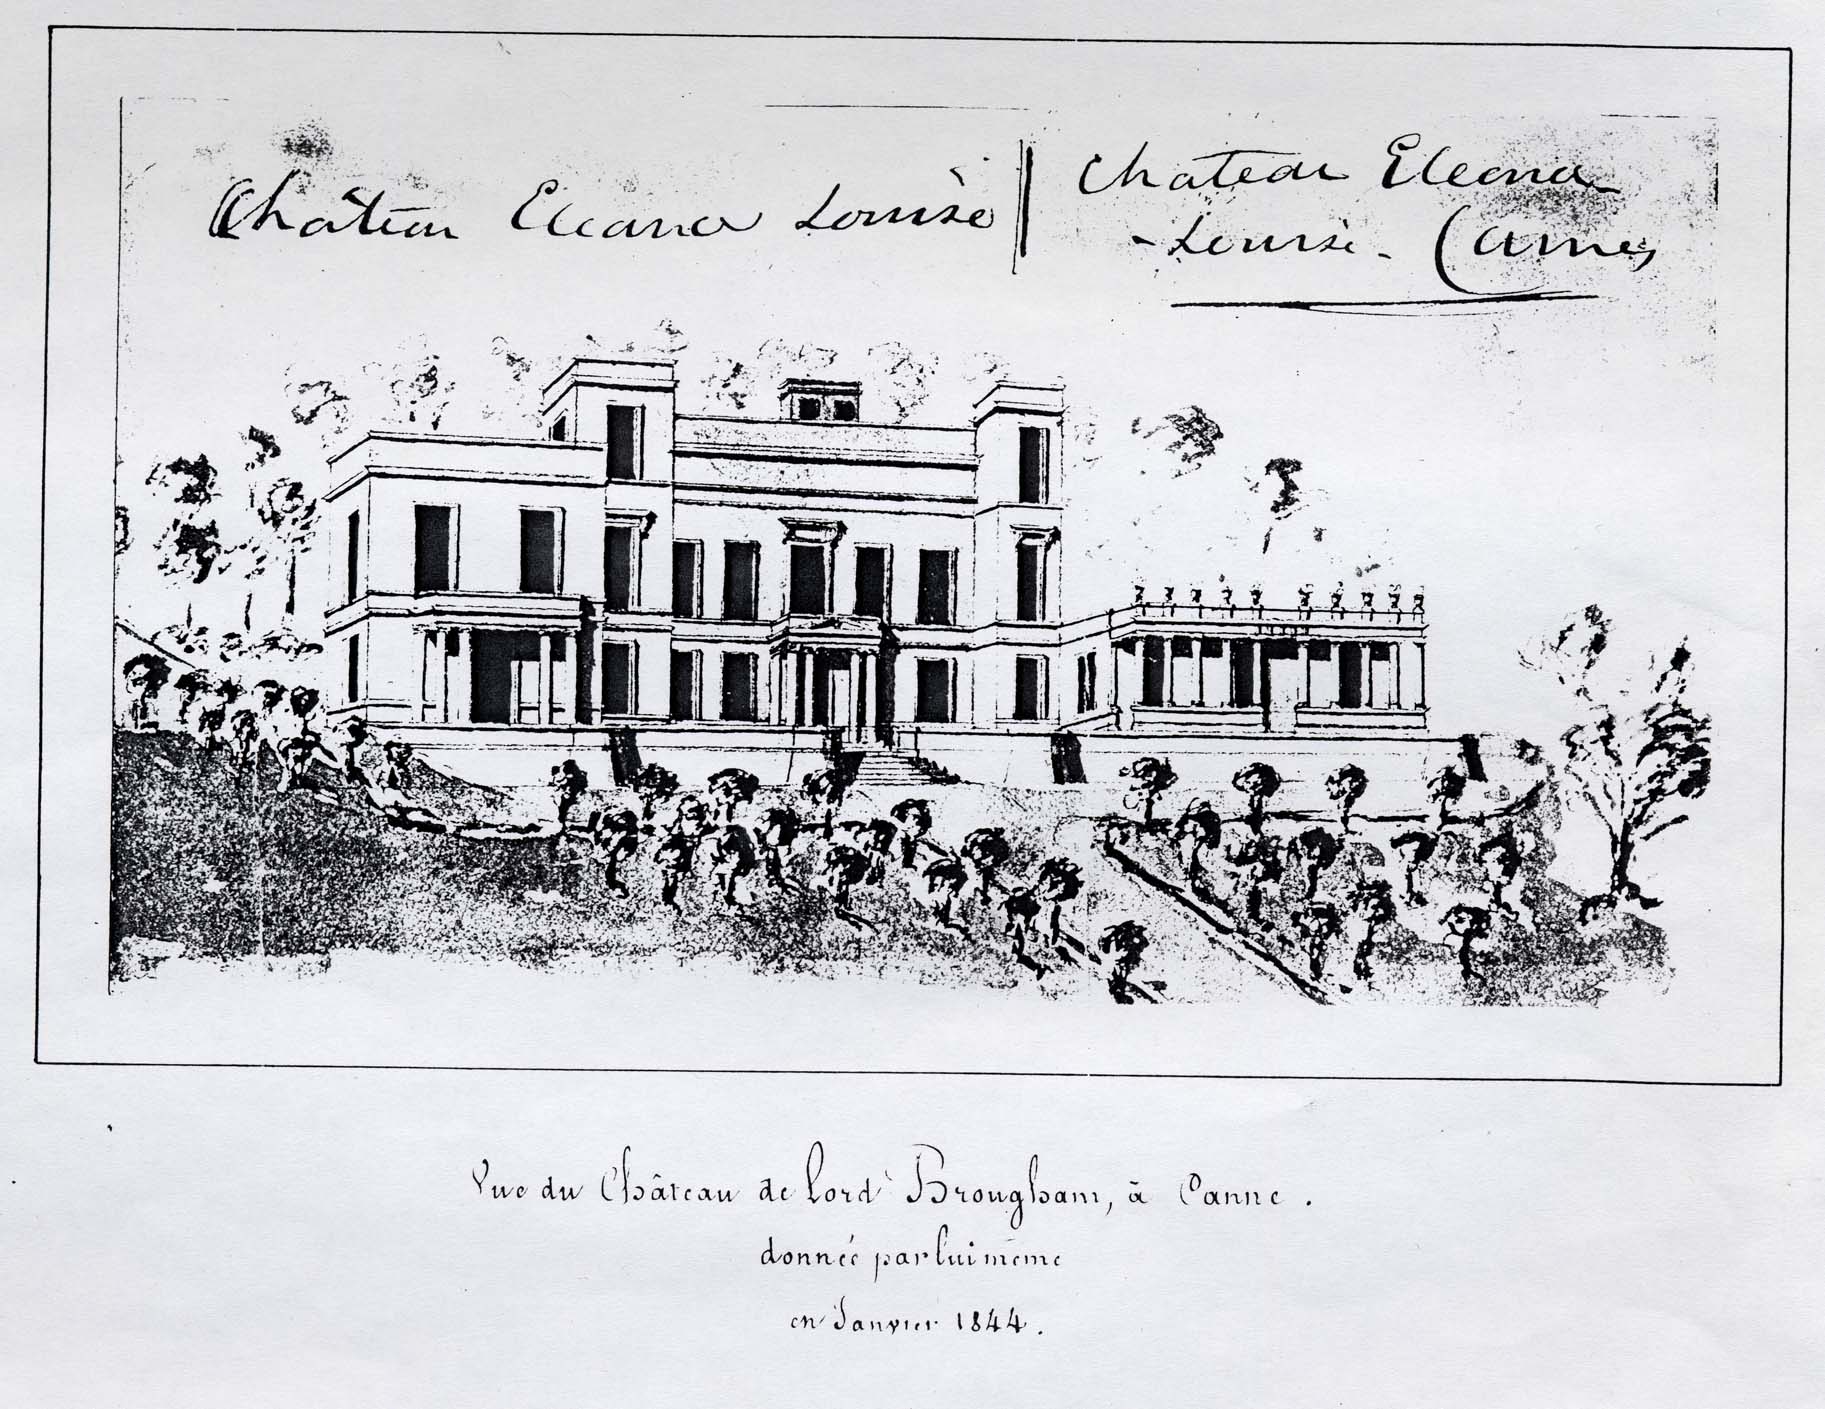 Château Eleanor Louise
Chateau Eleonor
- Louise - Cannes
Vue du Château de Lord Brougham, à Canne.
donnée par lui même
en Janvier 1844.